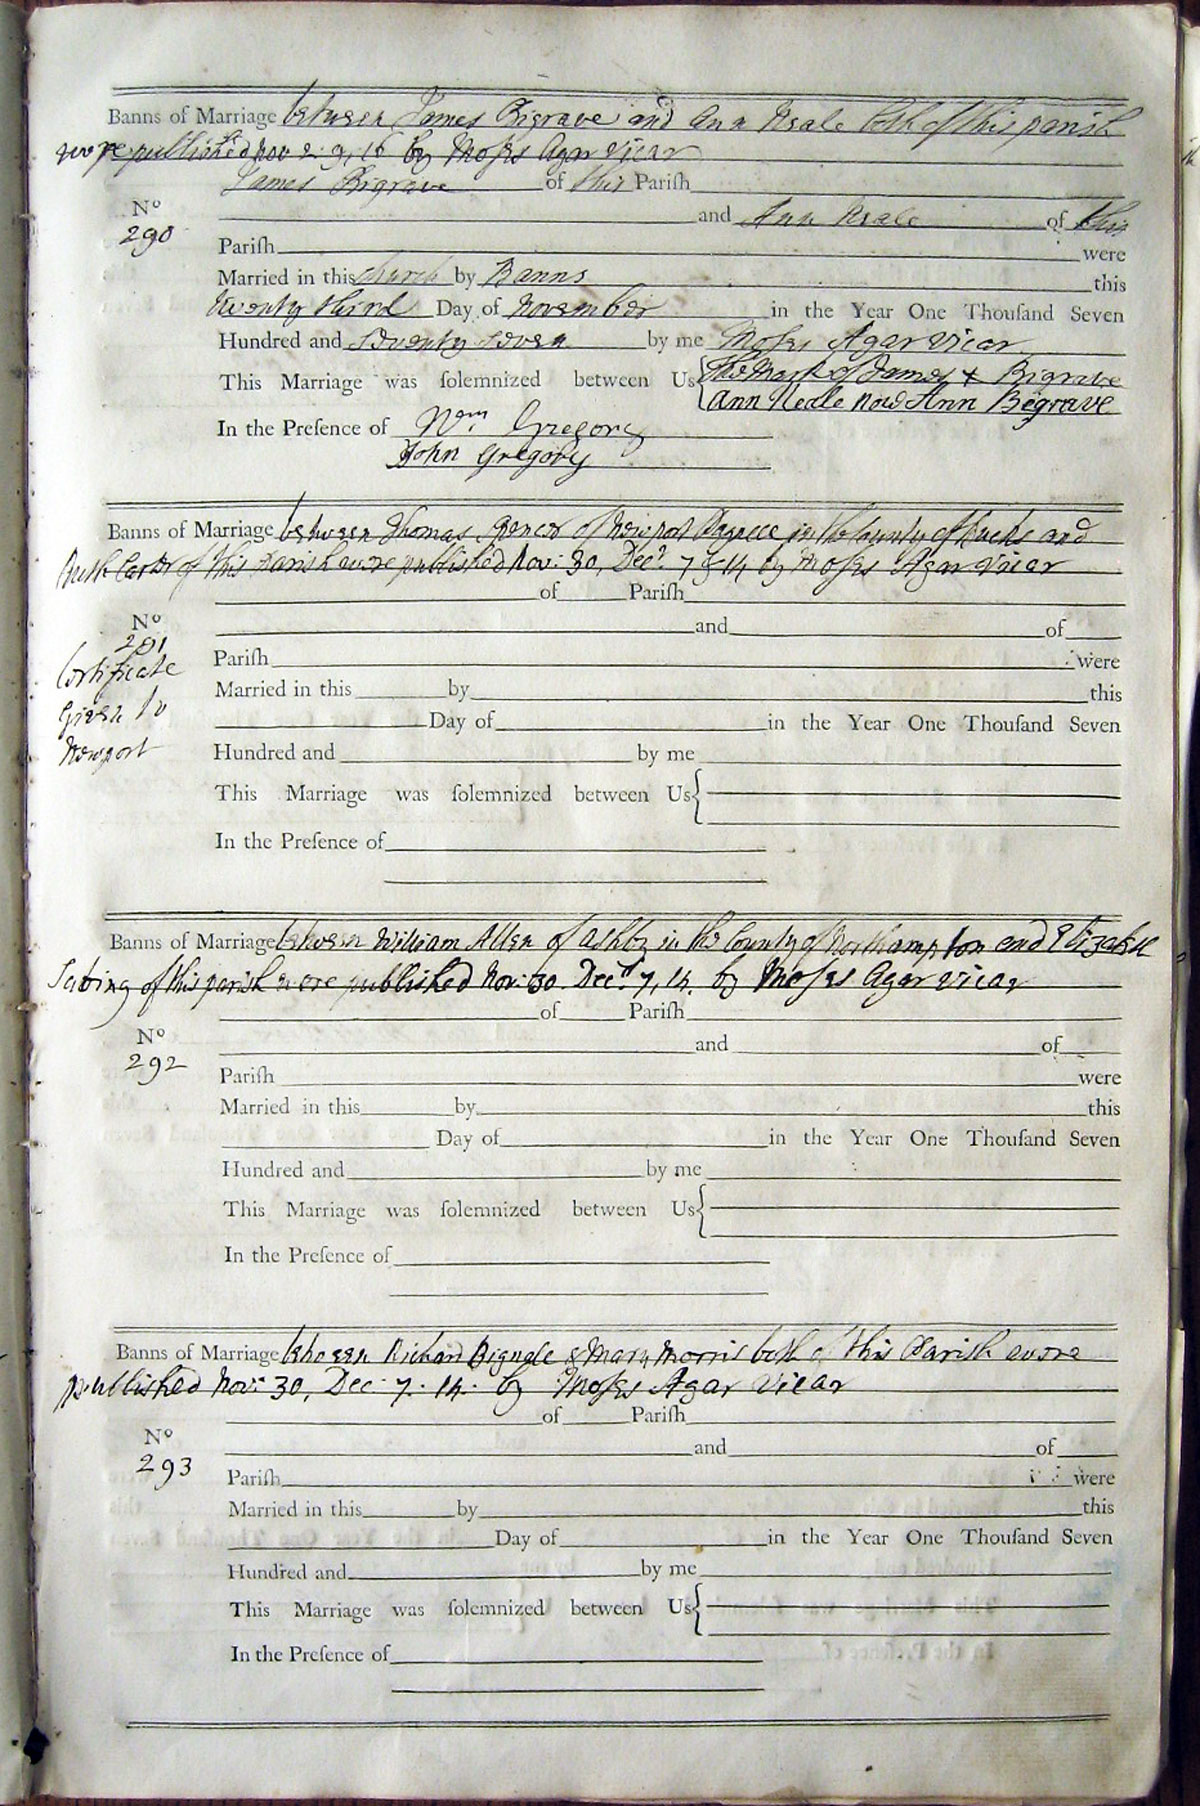 Banns of Marriage between James Bigrave and Ann Neale both of this parish
were published Nov 2. 9, 16 by Moses Agar Vicar
James Bigrave of this Pariſh
Nº and Ann Neale of this
290
Pariſh were
Married in this church by Banns this
twenty third Day of November in the Year One Thouſand Seven
Hundred and Seventy Seven by me Moses Agar Vicar
This Marriage was ſolemnized between Us { The Mark of James + Bigrave
Ann Neale now Ann Begrave
In the Preſence of Wm Gregory
John Gregory
Banns of Marriage between Thomas of Newport in the County of Bucks and
of this Parish were published Nov: 30, Decr. 7 & 14 by Moses Agar Vicar
of Pariſh
Nº and of
291
Certificate Pariſh were
Married in this by this
Given to
Day of in the Year One Thouſand Seven
Newport
Hundred and by me
This Marriage was ſolemnized between Us {
In the Preſence of
Banns of Marriage between William Allen of Ashby in the County of Northampton and Elizabeth
of this parish were published Nov: 30. Decr. 7, 14. by Moses Agar Vicar
of Pariſh
Nº and of
292
Pariſh were
Married in this by this
Day of in the Year One Thouſand Seven
Hundred and by me
This Marriage was ſolemnized between Us {
In the Preſence of
Banns of Marriage between Richard Bignale & Mary Morris both of this Parish were
published Nov: 30, Dec: 7. 14. by Moses Agar Vicar
of Pariſh
Nº and of
293
Pariſh were
Married in this by this
Day of in the Year One Thouſand Seven
Hundred and by me
This Marriage was ſolemnized between Us {
In the Preſence of